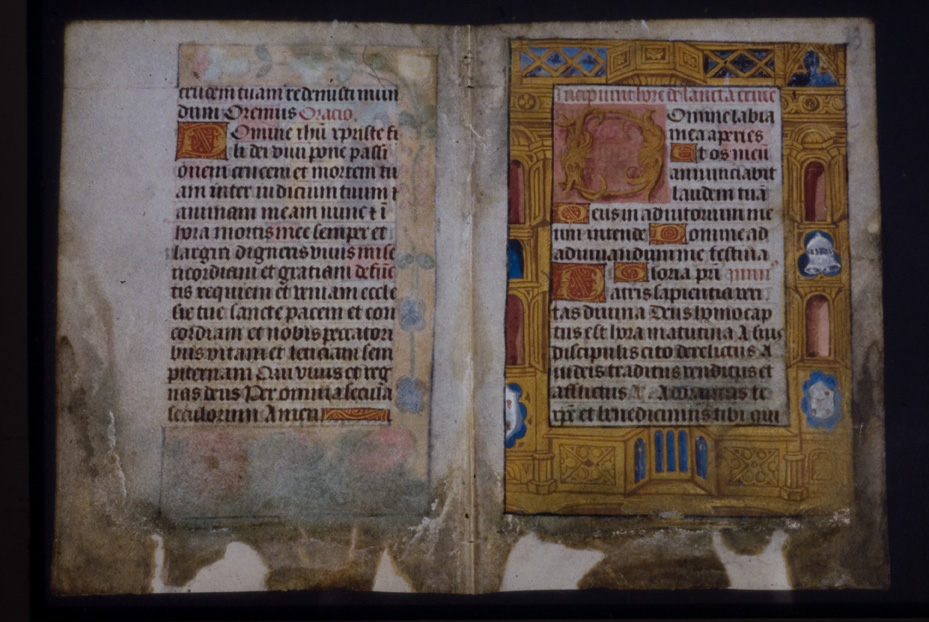 crucem tuam redemisti mun
dum Oremus Oracio.
Domine ihu xpriste fi
li dei viui pone passi
onem crucem et mortem tu
am inter iudicium tuum &
animam meam nunc & i
hora mortis mee semper et
largiri digneris viuis mise
ricordiam et gratiam defūc
tis requiem et veniam eccle
sie tue sancte pacem et con
cordiam et nobis peccatori
bus vitam et leticiam sem
piternam Qui viuis et reg
nas deus Per omnia secula
seculorum Amen
Incipiunt hore de sancta cruce
Domine labia
mea aperies
Et os meū
annunciabit
laudem tuā
Deus in adiutorium me
um intende Domine ad
adiuuandum me festina
Gloria pri
Patris sapientia veri
tas diuina Deus homo cap
tus est hora matutina A suis
discipulis cito derelictus A
iudeis traditus venditus et
afflictus Adoramus te
xpē et benedicimus tibi qui